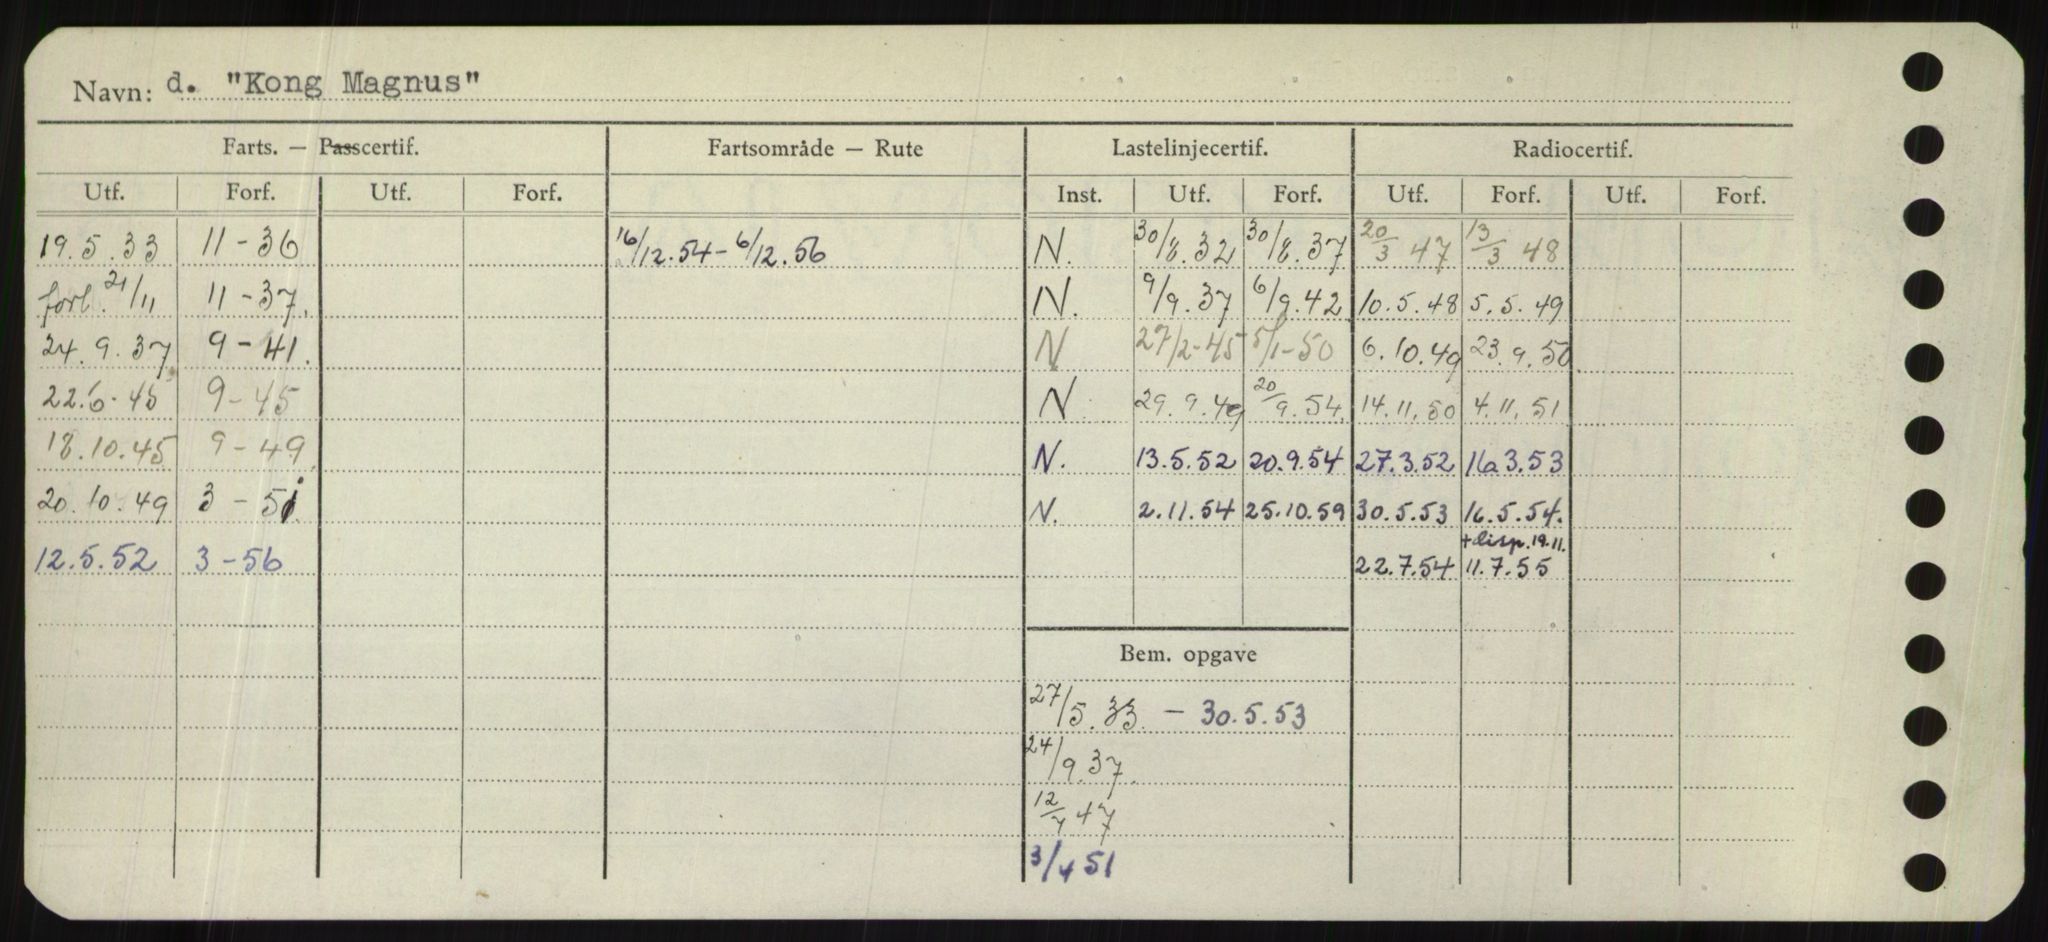 Navn: d. "Kong Magnus"
Farts. — Passcertif. Fartsområde — Rute Lastelinjecertif. Radiocertif.
Utf. Forf. Utf. Forf. Inst. Utf. Forf. Utf. Forf. Utf. Forf.
19.5.33 11-36 16/12.54-6/12.56 N. 30/8.32 30/8.37 20/3 47 13/3 48
forl. 21/11 11-37. N. 9/9.37 6/9.42 10.5.48 5.5.49
24.9.37 9-41. N 27/2-45 5/1-50 6.10.49 23.9.50
22.6.45 9-45 N 29.9.49 20/9.54. 14.11.50 4.11.51
18.10.45 9-49. N. 13.5.52 20.9.54 27.3.52 16.3.53
20.10.49 3-51 N. 2.11.54 25.10.59 30.5.53 16.5.54.
+disp.19.11.
12.5.52 3-56 22.7.54 11.7.55
Bem. opgave
27/5.33 - 30.5.53
24/9.37.
12/7 47
3/4 51